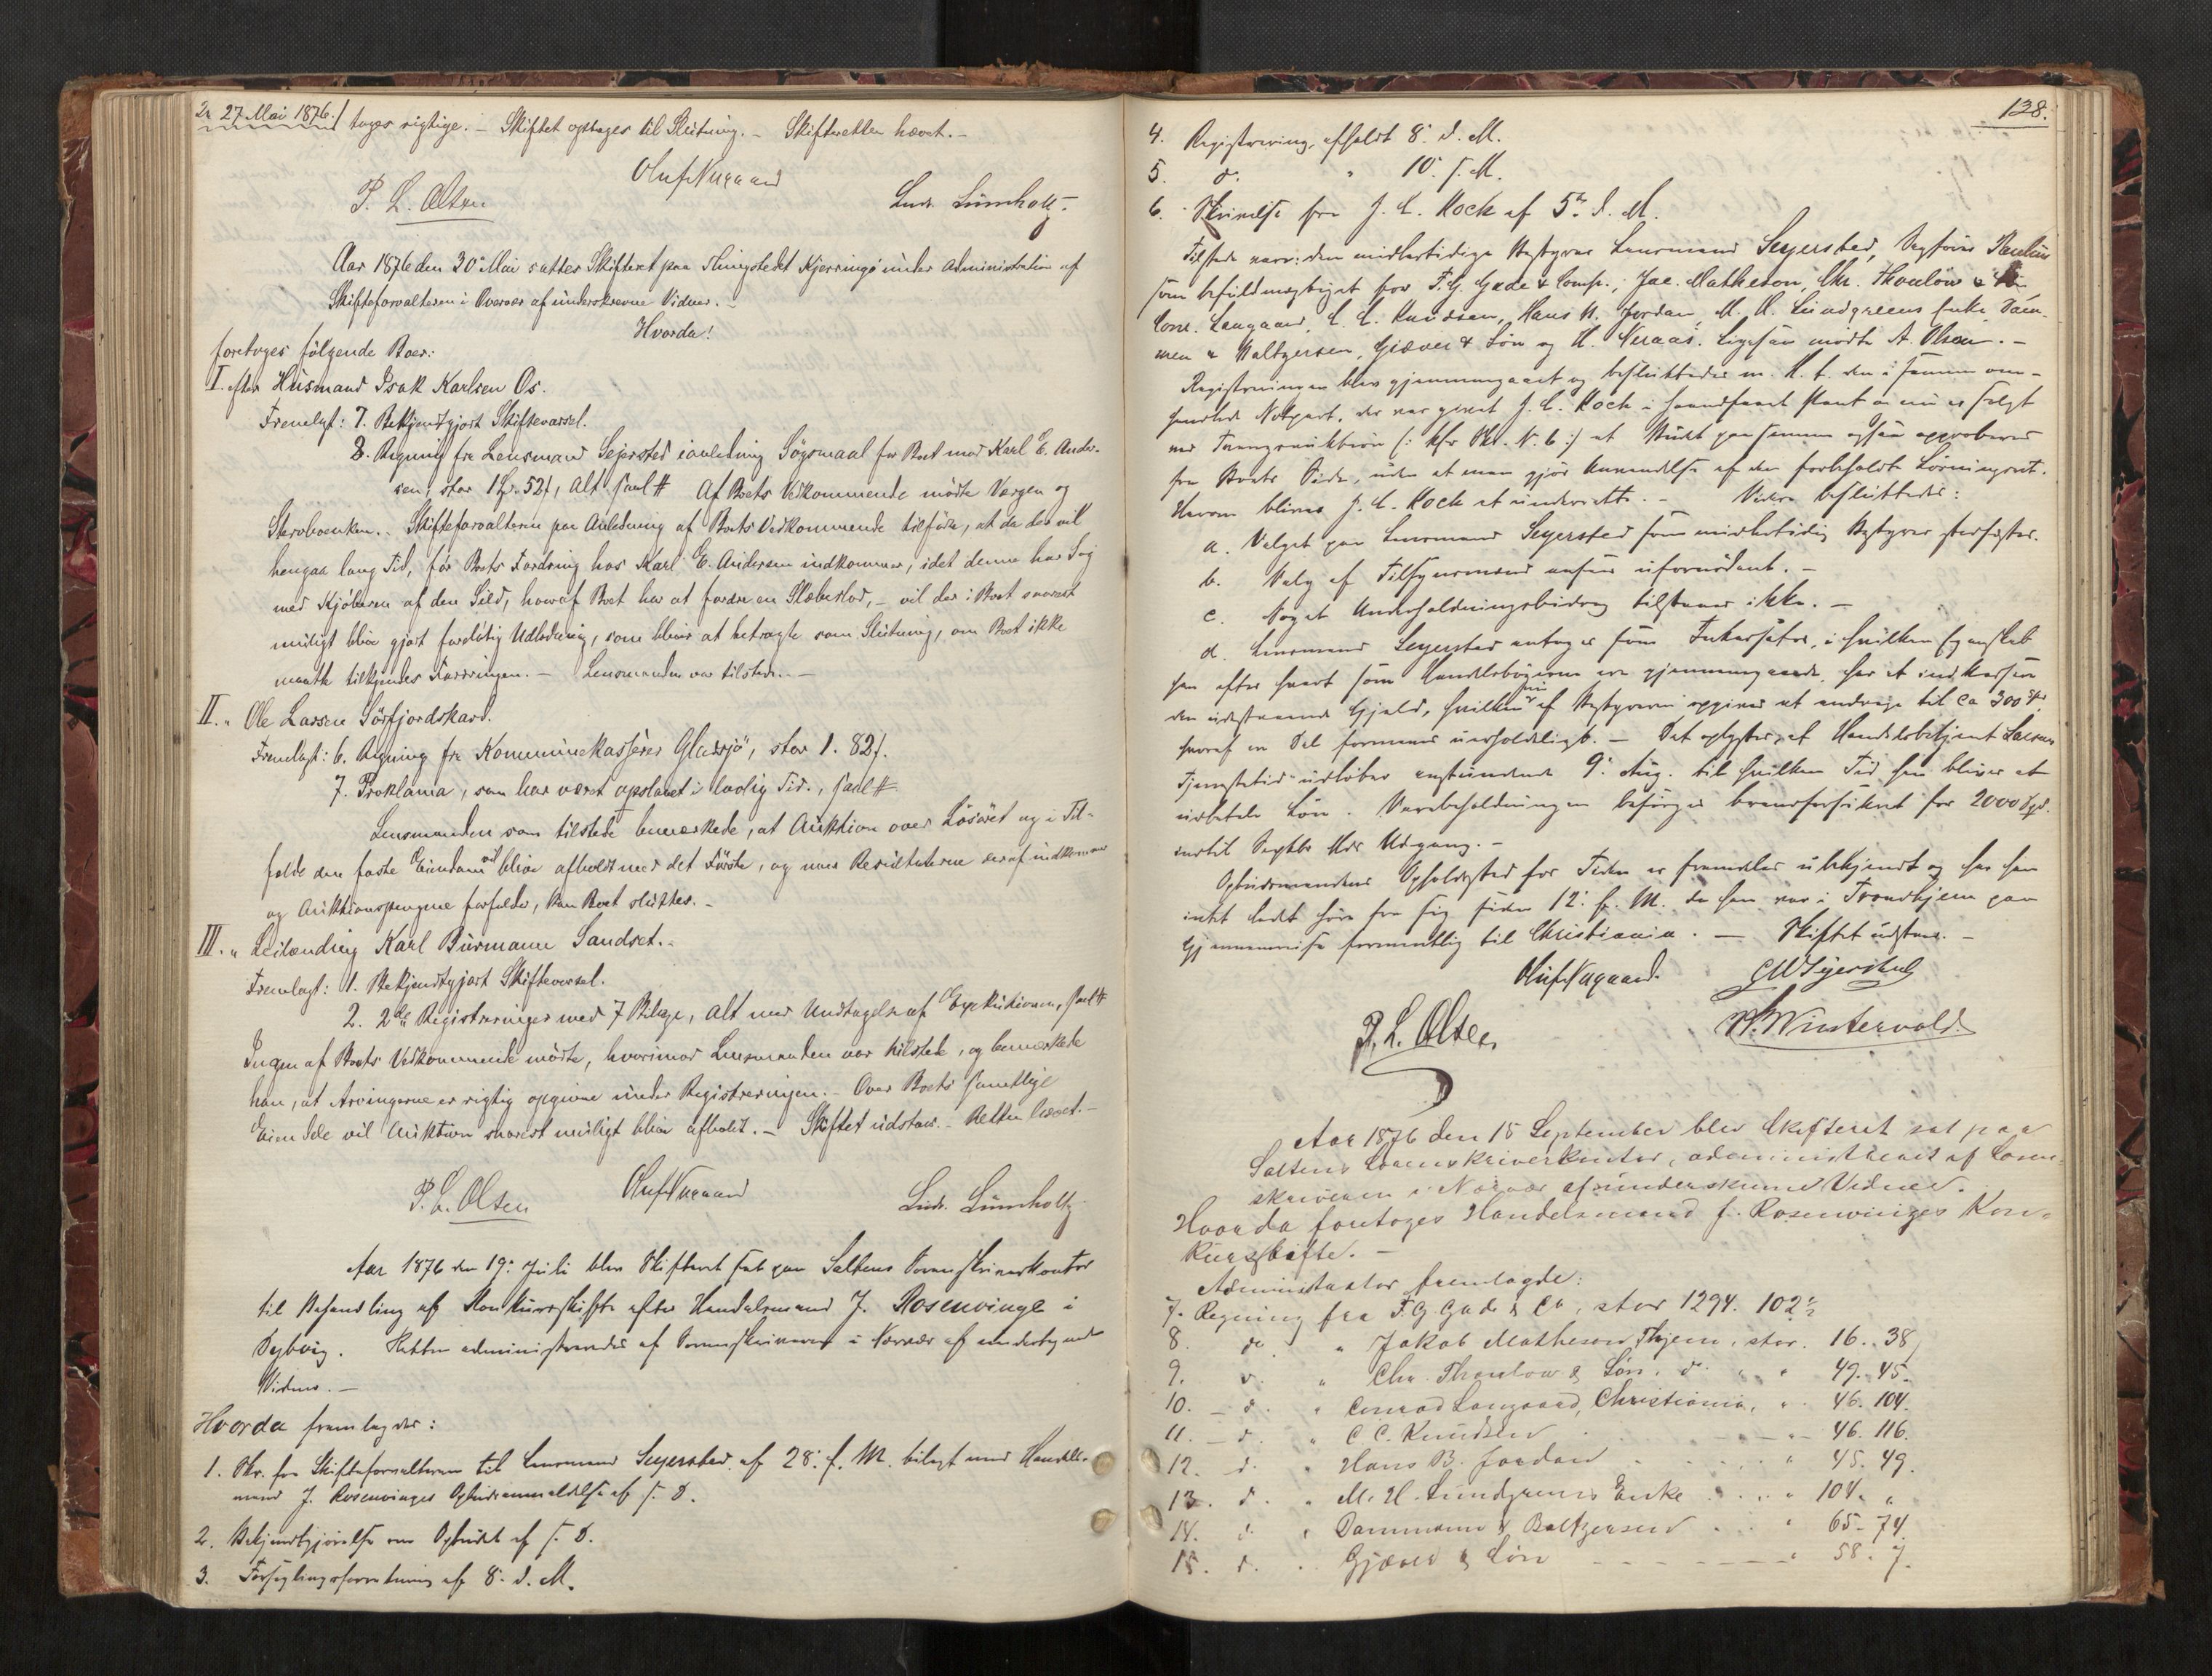 27 Mai 1876. tages rigtige. – Skiftet optages til Slutning. – Skifteretten hævet. –
Oluf Nugaard
P. L. Olsen Ludv. Lümholtz.
Aar 1876 den 30 Mai sattes Skifteret paa Thingstedet Kjerringö under Administration af
Skifteforvalteren i Overvær af underskrevne Vidner. –
Hvorda!
foretoges følgende Boer:
I. efter Husmand Isak Karlsen Os.
Fremlagt: 7. Bekjendtgjort Skiftevarsel.
8. Regning fra Lensmand Sejersted i anledning Søgsmaal for Boet mod Karl E. Ander-
sen, stor 52 f, Alt saal. Af Boets Vedkommende mødte Værgen og
Stervboenken. Skifteforvalteren paa Anledning af Boets Vedkommende tilførte, at da det vil
hengaa lang Tid, før Boets Fordring hos Karl E. Andersen indkommer, idet denne har Sag
med Kjøberen af den Sild, hvoraf Boet har at fordre en Slæbelod, – vil der i Boet snarest
muligt blive gjort foreløbig Udlodning, som bliver at betragte som Slutning, om Boet ikke
maatte tilkjendes Fordringen. – Lensmanden var tilstede. –
II. " Ole Larsen Sörfjordskard.
Fremlagt: 6. Regning fra Kommunekasserer stor 1. 82 f.
7. Proklama, som har været opslaaet i lovlig Tid, saal.
Lensmanden som tilstede bemærkede, at Auktion over Løsøret og i Til-
fælde den faste Eiendom vil blive afholdt med det Første, og naar Resultaterne deraf indkommer
og Auktionspengene forfalder, kan Boet sluttes. –
III. " Leilænding Karl Burmann Sandset. –
Fremlagt: 1. Bekjendtgjort Skiftevarsel.
2. 2de Registreringer med 7 Bilage, Alt med Undtagelse af Exekutionen, saal.
Ingen af Boets Vedkommende mødte, hvorimod Lensmanden var tilstede, og bemærkede
han, at Arvingerne er rigtig opgivne under Registreringen. – Over Boets samtlige
Eiendele vil Auktion snarest muligt blive afholdt. – Skiftet udstaar. – Retten hævet. –
P. L. Olsen Oluf Nugaard Ludv. Lümholtz
Aar 1876 den 19. Juli blev Skifteret sat paa Saltens Sorenskriverkontor
til Behandling af Konkursskifte efter Handelsmand J. Rosenvinge i
Retten administreredes af Sorenskriveren i Nærvær af undertegnede
Vidner. –
Hvorda fremlagdes:
1. Skr. fra Skifteforvalteren til Lensmand Seyersted af 28. f. M. bilagt med Handels-
mand J. Rosenvinges Opbudsanmeldelse af s. D.
2. Bekjendtgjørelse om Opbudet af s. D.
3. Forseglingsforretning af 8. d. M.
138.
4. Registrering, afholdt 8. d. M.
5. d. " 10. s. M.
6. Skrivelse fra J. C. Kock af 5te d. M.
Tilstede var: den midlertidige Bestyrer Lensmand Seyersted, Sagfører
som befuldmægtiget for F. G. Gade & Comp., Jac. Matheson, Chr. Thoulow &
Conr. Langaard, C. C. Knudsen, Hans B. Jordan, M. H. Lundgreens Enke, Dam-
men & Baltzersen, Giæver & Søn og H. Neraas. Ligesaa mødte A. Olsen. –
Registreringen blev gjennemgaaet og besluttedes m. H. t. den i samme om-
handlede Notpart, der var givet J. C. Kock i haandfaaet Pant
ved Tvangsauktion (: kfr. Skr. N. 6 :) at Budet paa samme ogsaa approberes
fra Boets Side, uden at man gjør Anvendelse af den forbeholdte Løsningsret.
Herom bliver J. C. Kock at underrette. – Videre besluttedes:
a. Valget paa Lensmand Seyersted som midlertidig Bestyrer stadfæstes.
b. Valg af Tilsynsmænd ansees ufornødent. –
c. Noget Underholdningsbidrag tilstaaes ikke. –
d. Lensmand Seyersted antages som Inkassator, i hvilken Egenskab
han efter hvert som Handelsbøgerne ere gjennemgaaede, har at indkassere
den udestaaende Gjæld, hvilken af Bestyreren opgives at andrage til ca 300
hvoraf en Del formenes uerholdeligt. – Det oplystes, at Handelsbetjent Larsens
Tjenestetid udløber anstundende 9. Aug. til hvilken Tid han bliver at
udbetale Løn. Varebeholdningen besørges brandforsikret for 2000 Spd.
indtil Septbr. Mds Udgang. –
Opbudsmandens Opholdssted for Tiden er fremdeles ubekjendt og har han
intet ladet høre fra sig siden 12. f. M. da han var i Trondhjem paa
Gjennemreise formentlig til Christiania. – Skiftet udstaar. –
Oluf Nugaard.
P. L. Olsen H. Wintervold
Aar 1876 den 15 September blev Skifteret sat paa
Saltens Sorenskriverkontor, administreret af Soren-
skriveren i Nærvær af underskrevne Vidner.
Hvorda foretoges Handelsmand J. Rosenvinges Kon-
kursskifte. –
Administrator fremlagde:
7. Regning fra F. G. Gade & Co, stor 1294. 102
8. do " Jakob Matheson Thjem, stor. 16. 38
9. d. " Chr. Thoulow & Søn, d. " 49. 45.
10. – d. " Conrad Langaard, Christiania, " 46. 104.
11. – d. " C. C. Knudsen " 46. 116.
12. d. " Hans B. Jordan " 45. 49.
13. d. " M. H. Lundgreens Enke " 104. "
14. d. " Dammann & Baltzersen " 65. 74.
15. d. " Gjæver & Søn " 58. 7.